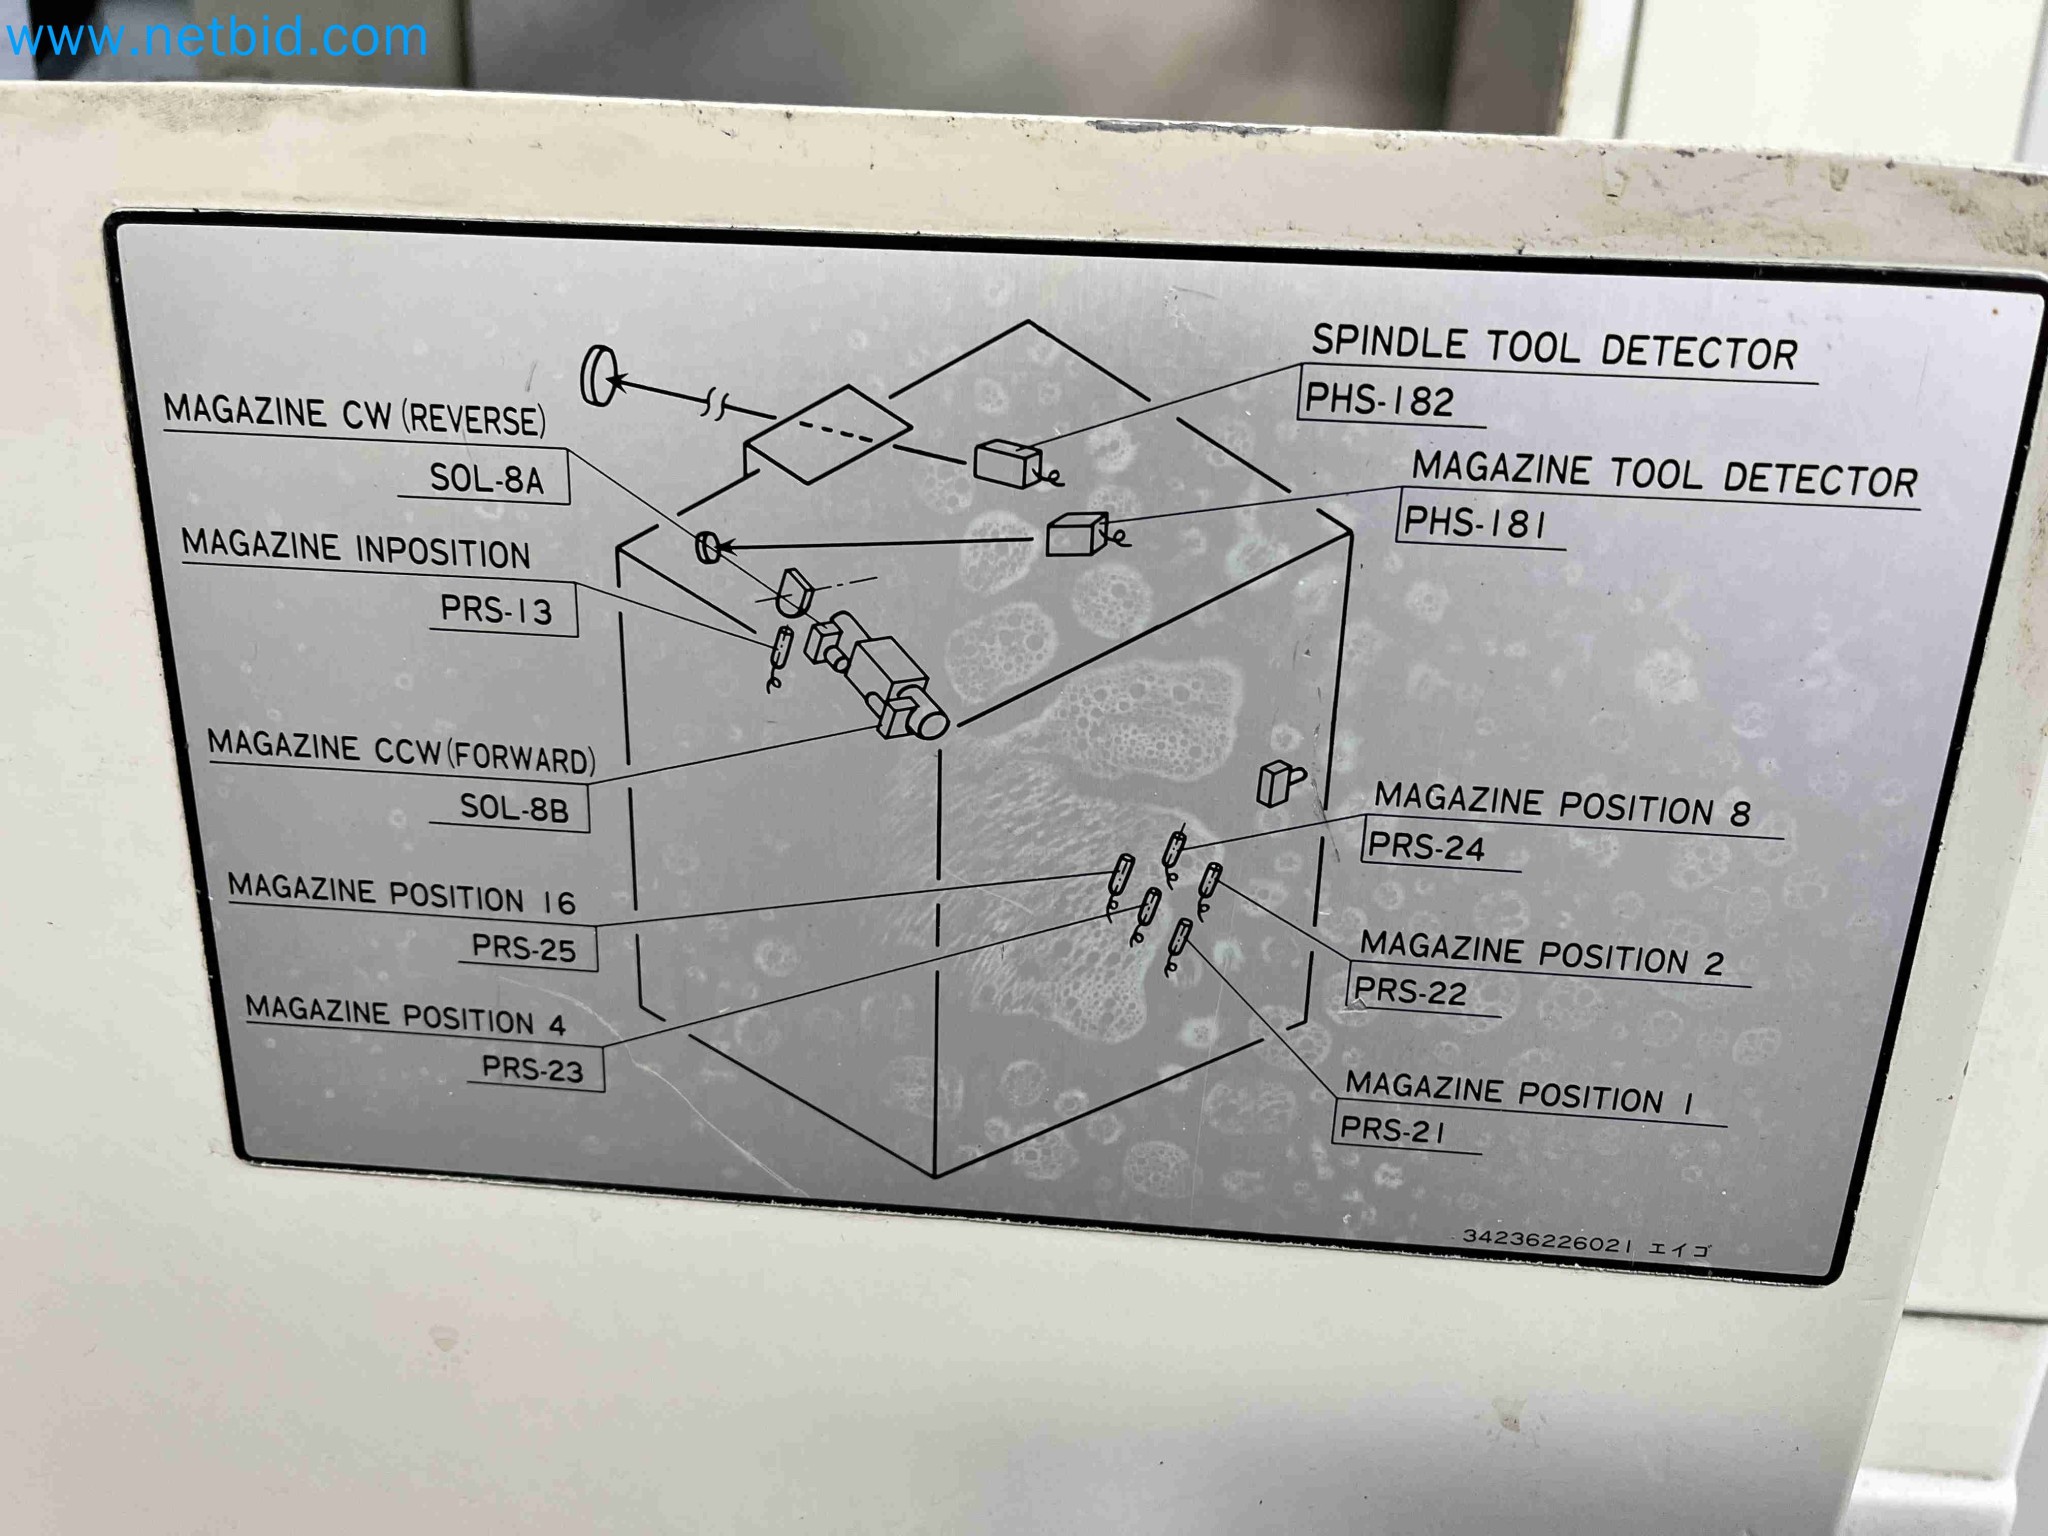 www.netbid.com
SPINDLE TOOL DETECTOR
PHS-182
MAGAZINE CW (REVERSE)
SOL-8A
MAGAZINE TOOL DETECTOR
PHS-181
MAGAZINE INPOSITION
PRS-13
MAGAZINE CCW (FORWARD)
SOL-8B
MAGAZINE POSITION 8
PRS-24
MAGAZINE POSITION 16
PRS-25
MAGAZINE POSITION 2
PRS-22
MAGAZINE POSITION 4
PRS-23
MAGAZINE POSITION 1
PRS-21
34236226021 エイゴ